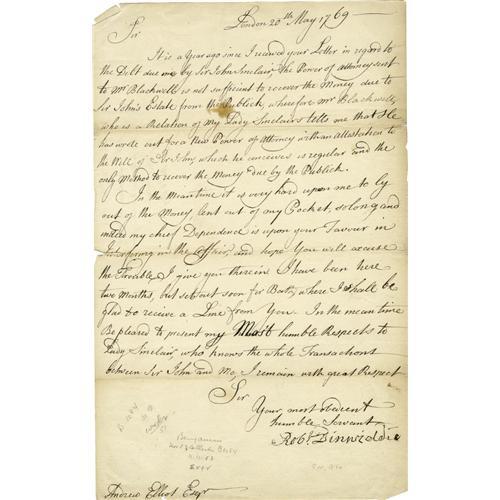 London 20th May 1769
Sir
It is a Year ago since I received your Letter in regard to
the Debt due me by Sir John Sinclair, the Power of attorney sent
to Mr Blackwell is not sufficient to recover the Money due to
Sir John's Estate from the Publick, wherefore Mr Blackwell,
who is a Relation of my Lady Sinclairs tells me that He
has wrote out for a New Power of Attorney with an Attestation to
the Will of Sir John, which he conceives is regular and the
only Method to recover the Money due by the Publick.
In the Meantime it is very hard upon me to ly
out of the Money, lent out of my Pocket, so long and
makes my chief Dependence is upon your Favour in
Interfering in the Affair, and hope You will excuse
the Trouble I give you therein I have been here
two Months, but set out soon for Bath, where I shall be
glad to receive a Line from You. In the mean time
Be pleased to present my Most humble Respects to
Lady Sinclair, who knows the whole Transactions
between Sir John and Me, I remain with great Respect
Sir
Your most obedient
humble Servant
Robt Dinwiddie
Benjamin
Andrew Elliot Esqr